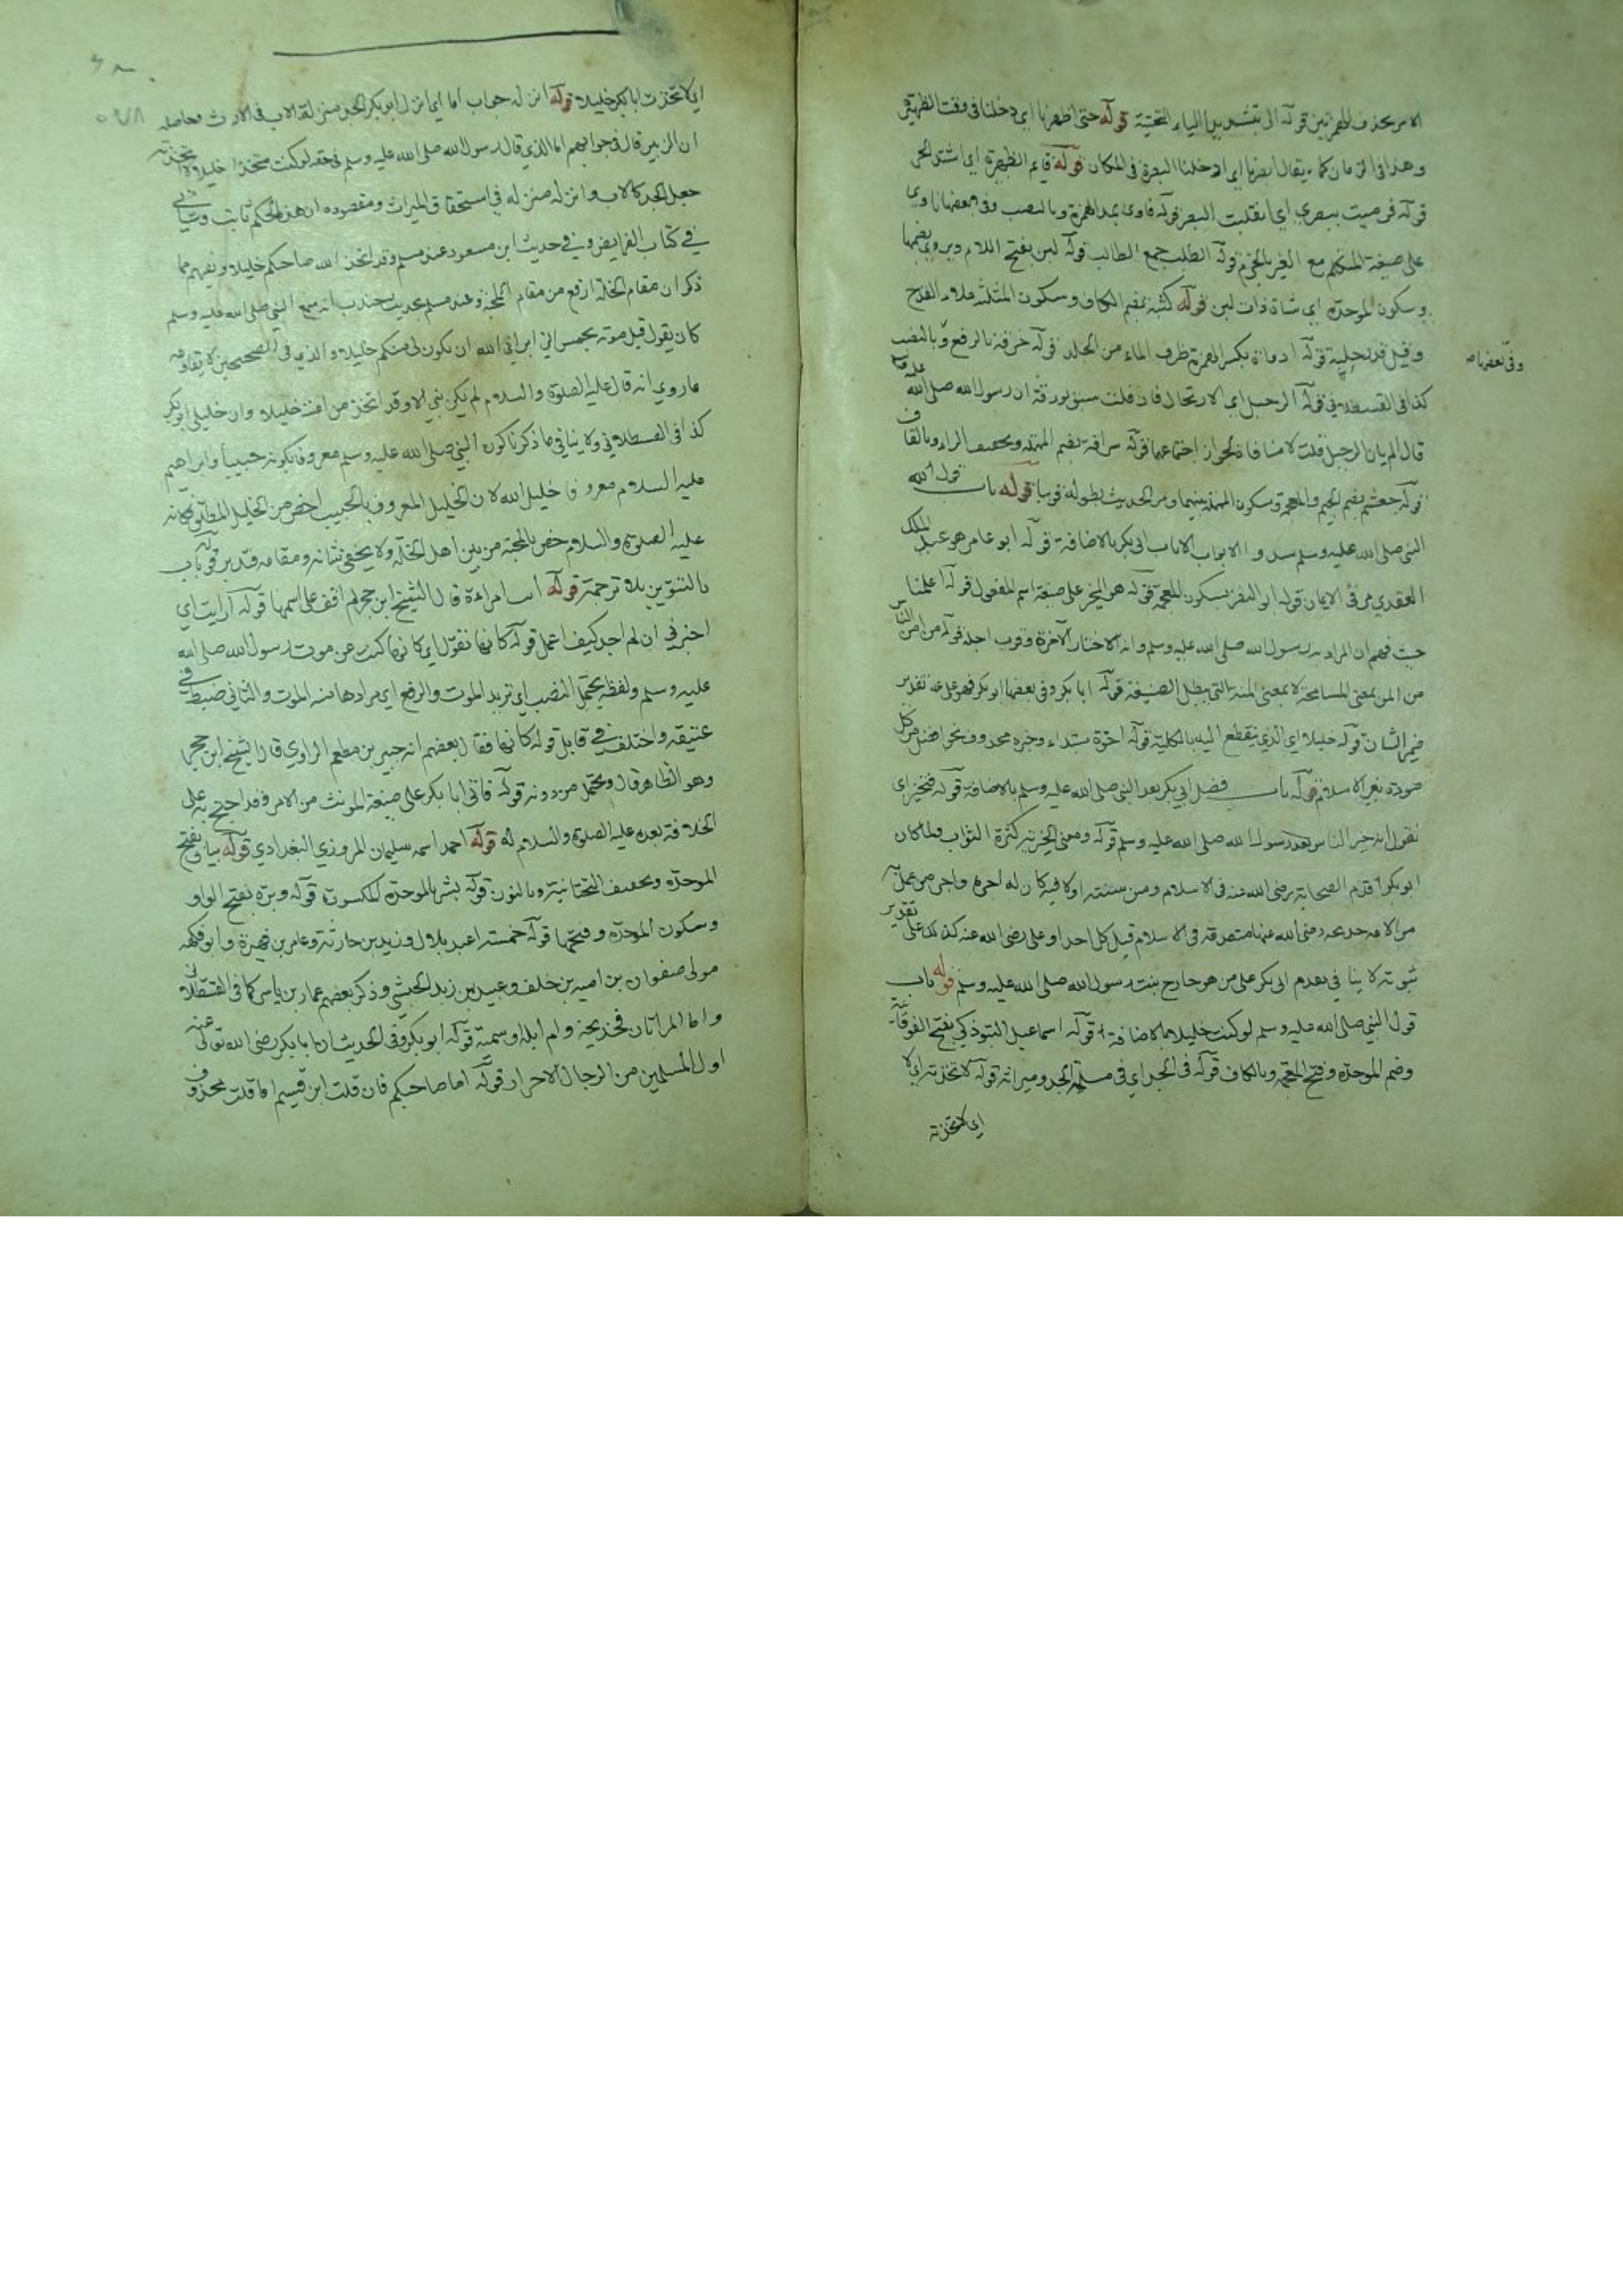 الامر بحذف الهمزتين قوله الى بتشديد الياء التحتية قوله حتى اظهرنا اي دخلنا في وقت الظهيرة
وهذا في الزمان كما يقال ابصرنا اي ادخلنا البصرة في المكان قوله قايم الظهيرة اي اشتد الحر
قوله فرميت ببصري اي انقلبت البصر قوله فاوى بمد الهمزة وبالنصب وفي بعضها ناوي
على صيغة المتكلم مع الغير بالجزم قوله الطلب جمع الطالب قوله لبن بفتح اللام ويروى بضمها
وسكون الموحدة اي شاة ذات لبن قوله كثبة بضم الكاف وسكون المثلثة ملاء القدح
وقيل قدر حلبة قوله اداوة بكسر الهمزة ظرف الماء من الجلد قوله خرقة بالرفع وبالنصب
وفي بعضها
كذا في القسطلاني قوله الرحيل اي الارتحال فان قلت سبق ان رسول الله صلى الله عليه
قال الم يان الرحيل قلت لا منافاة لجواز اجتماعهما قوله سراقة بضم المهملة وتخفيف الراء وبالقاف
قوله جعشم بضم الجيم والمعجمة وسكون المهملة بينهما ومر الحديث بطوله قريبا قوله باب قول
النبي صلى الله عليه وسلم سدوا الابواب الا باب ابي بكر بالاضافة قوله ابو عامر هو عبد الملك
العقدي مر في الايمان قوله ابو النضر بسكون المعجمة قوله هو المخير على صيغة اسم المفعول قوله اعلمنا
حيث فهم ان المراد به رسول الله صلى الله عليه وسلم وانه الاختار الآخرة وقرب اجله قوله من امن الناس
من المن بمعنى المسامحة لا بمعنى المنة التي يبطل الصنيعة قوله ابا بكر وفي بعضها ابو بكر فهو على تقدير
ضمير الشان قوله خليلا اي الذي ينقطع اليه بالكلية قوله اخوة مبتداء وخبره محذوف نحو افضل من كل
مودة بغير الاسلام قوله باب فضل ابي بكر بعد النبي صلى الله عليه وسلم بالاضافة قوله فنخير اي
نقول انه خير الناس بعد رسول الله صلى الله عليه وسلم قوله ومعنى الخيرية كثرة الثواب ولما كان
ابو بكر اقدم الصحابة رضي الله عنه في الاسلام ومن سنته اولا فيه كان له اجره واجر من عمل به
من الامة خديجة رضي الله عنها متصدقة في الاسلام قبل كل احد او علي رضي الله عنه كذلك على تقدير
ثبوته لا ينافي تقدم ابي بكر على من هو خارج بنت رسول الله صلى الله عليه وسلم قوله باب
قول النبي صلى الله عليه وسلم لو كنت خليلا بالاضافة قوله اسماعيل التبوذكي بفتح الفوقانية
وضم الموحدة وفتح المعجمة وبالكاف قوله في الجد اي في مسئلة الجد وميراثه قوله لاتخذته اي لا
اي لاتخذته
اي لاتخذت ابا بكر خليلا قوله انزله جواب اما اي انزل ابو بكر الجد منزلة الاب في الارث وحاصله
ان الزبير قال في جوابهم اما الذي قال رسول الله صلى الله عليه وسلم في حقه لو كنت متخذا خليلا لاتخذته
جعل الجد كالاب وانزله منزله في استحقاق الميراث ومقصوده ان هذا الحكم ثابت وسياتي
في كتاب الفرايض وفي حديث ابن مسعود عند مسلم وقد اتخذ الله صاحبكم خليلا ويفهم مما
ذكر ان مقام الخلة ارفع من مقام المحبة وعند مسلم بحديث جندب انه سمع النبي صلى الله عليه وسلم
كان يقول قبل موته بخمس اني ابرا الى الله ان يكون لي منكم خليلا والذي في الصحيحين لا يقاومه
ما روي انه قال عليه الصلوة والسلام لم يكن نبي الا وقد اتخذ من امته خليلا وان خليلي ابو بكر
كذا في القسطلاني ولا ينافي ما ذكرنا كون النبي صلى الله عليه وسلم معروفا بكونه حبيبا وابراهيم
عليه السلام معروفا خليل الله لان الخليل المعروف بالحبيب اخص من الخليل المطلق فكانه
عليه الصلوة والسلام خص بالمحبة من بين اهل الخلة ولا يخفى شانه ومقامه فتدبر قوله باب
بالتنوين بلا ترجمة قوله اتت امراءة قال الشيخ ابن حجر لم اقف على اسمها قوله ارايت اي
اخبرني ان لم اجد كيف اعمل قوله كانها تقول اي كانها كنت عن موت رسول الله صلى الله
عليه وسلم ولفظه يحتمل النصب اي تريد الموت والرفع اي مرادها منه الموت والثاني ضبط في
عتيقه واختلف في قايل قوله كانها فقال بعضهم انه جبير بن مطعم الراوي قال الشيخ ابن حجر
وهو الظاهر قال ويحتمل من دونه قوله فاتي ابا بكر على صيغة المونث من الامر وقد احتج به على
الخلافة بعده عليه الصلوة والسلام له قوله احمد اسمه سليمان المروزي البغدادي قوله بيان بفتح
الموحدة وتخفيف التحتانية وبالنون قوله بشر بالموحدة المكسورة قوله وبرة بفتح الواو
وسكون الموحدة وفتحها قوله خمسة اعبد بلال وزيد بن حارثة وعامر بن فهيرة وابو فكيهة
مولى صفوان بن امية بن خلف وعبيد بن زيد الحبشي وذكر بعضهم عمار بن ياسر كما في القسطلاني
واما المراتان فخديجة وام ايمن او سمية قوله ابو بكر وفي الحديث ان ابا بكر رضي الله تعالى عنه
اول المسلمين من الرجال الاحرار قوله اما صاحبكم فان قلت اين قسيم اما قلت محذوف